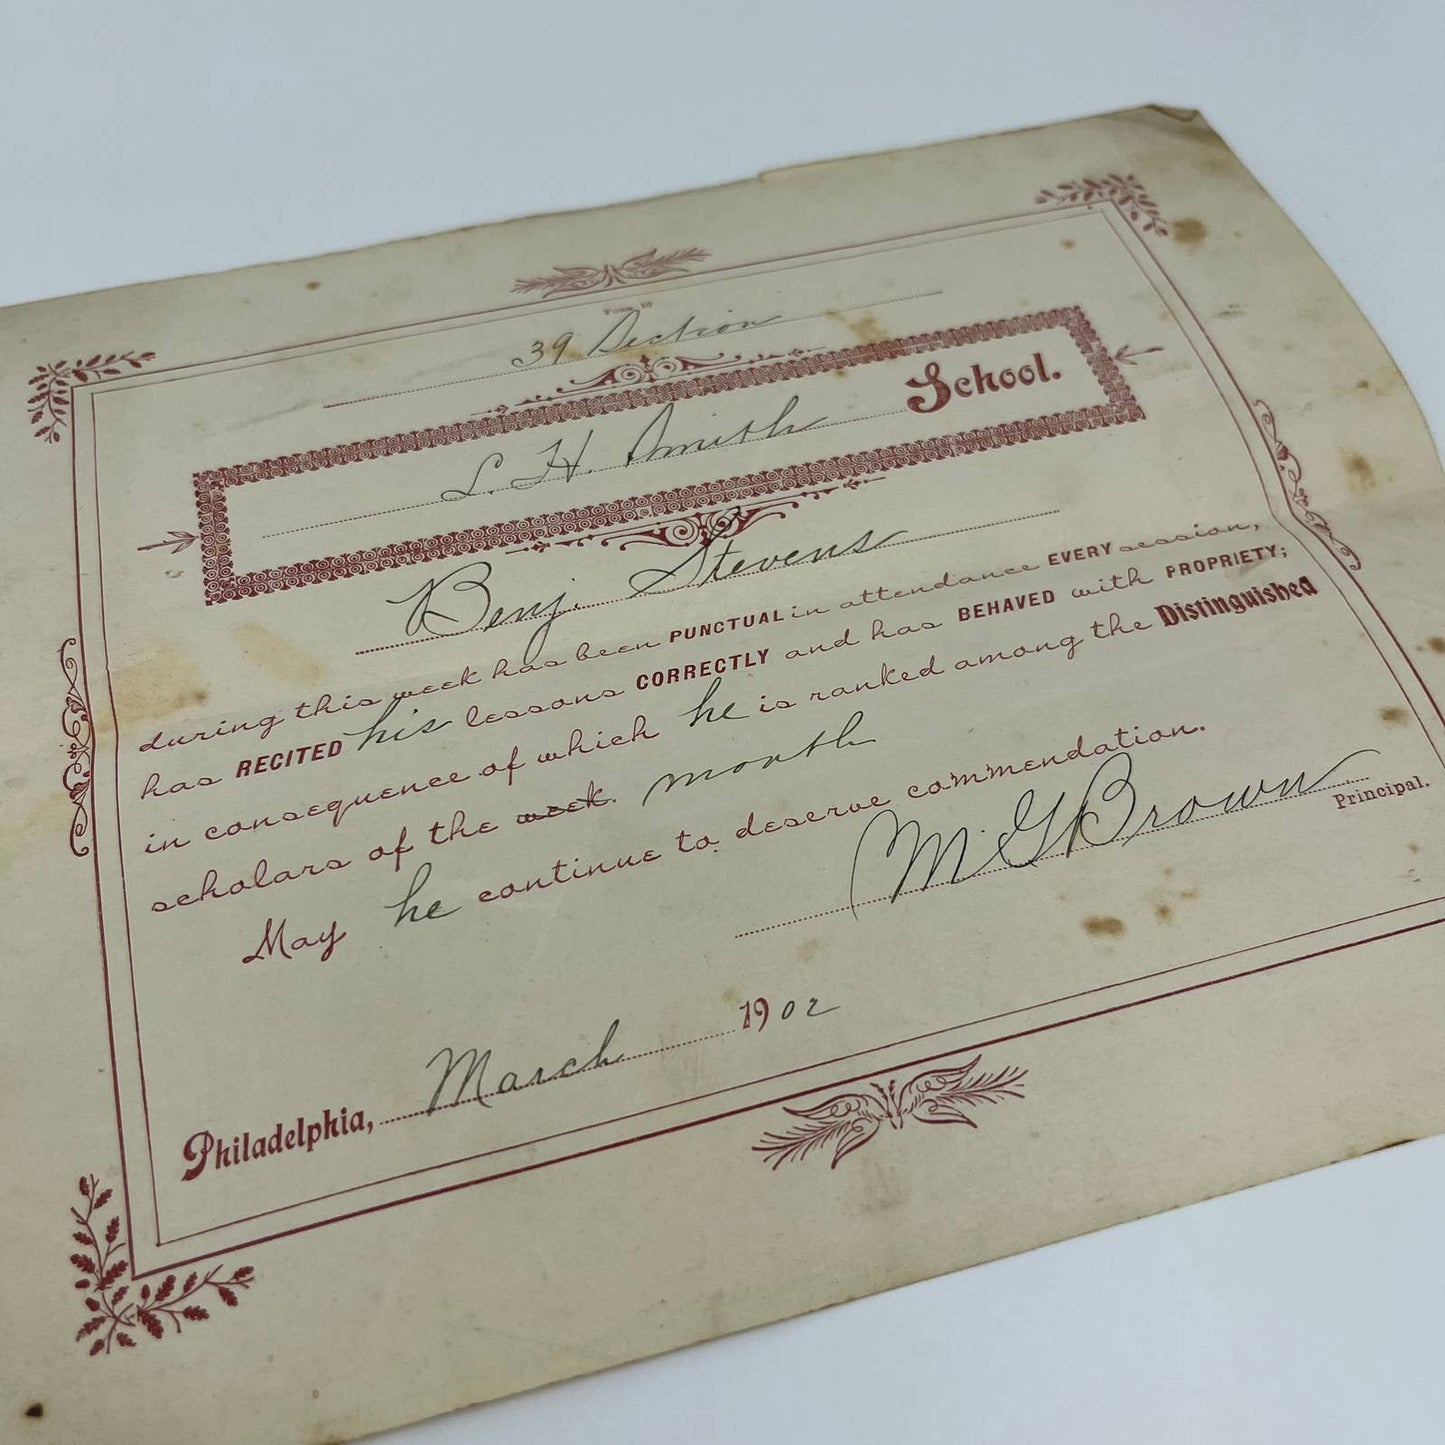 Form 10
39 Section
L. H. Smith School.
Benj. Stevens
during this week has been PUNCTUAL in attendance EVERY session,
has RECITED his lessons CORRECTLY and has BEHAVED with PROPRIETY;
in consequence of which he is ranked among the Distinguished
scholars of the week. month
May he continue to deserve commendation.
M. G. Brown
Principal.
Philadelphia, March 1902